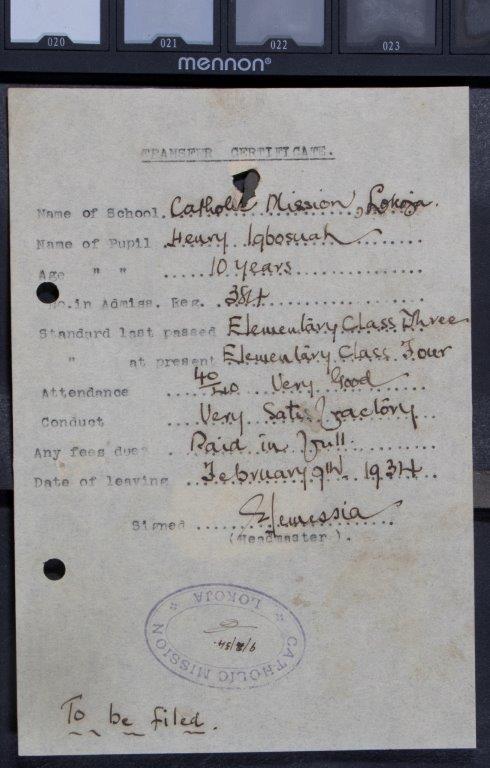 020 021 022 023
mennon®
TRANSFER CERTIFICATE.
Name of School. Catholic Mission, Lokoja.
Name of Pupil Henry Igbosuah
Age " " 10 years
No. in Admiss. Reg. 384
Standard last passed Elementary Class Three
" at present Elementary Class Four
Attendance 40/40 Very Good
Conduct Very Satisfactory
Any fees due? Paid in full.
Date of leaving February 9th. 1934.
Signed
(Headmaster).
CATHOLIC MISSION
LOKOJA
9/2/34.
To be filed.